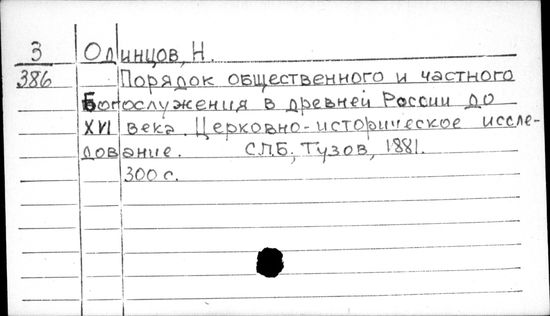 3 Одинцов, Н.
386 Порядок общественного и частного
Богослужения в древней России до
XVI века. Церковно-историческое иссле-
дование. СПБ, Тузов, 1881.
300 с.